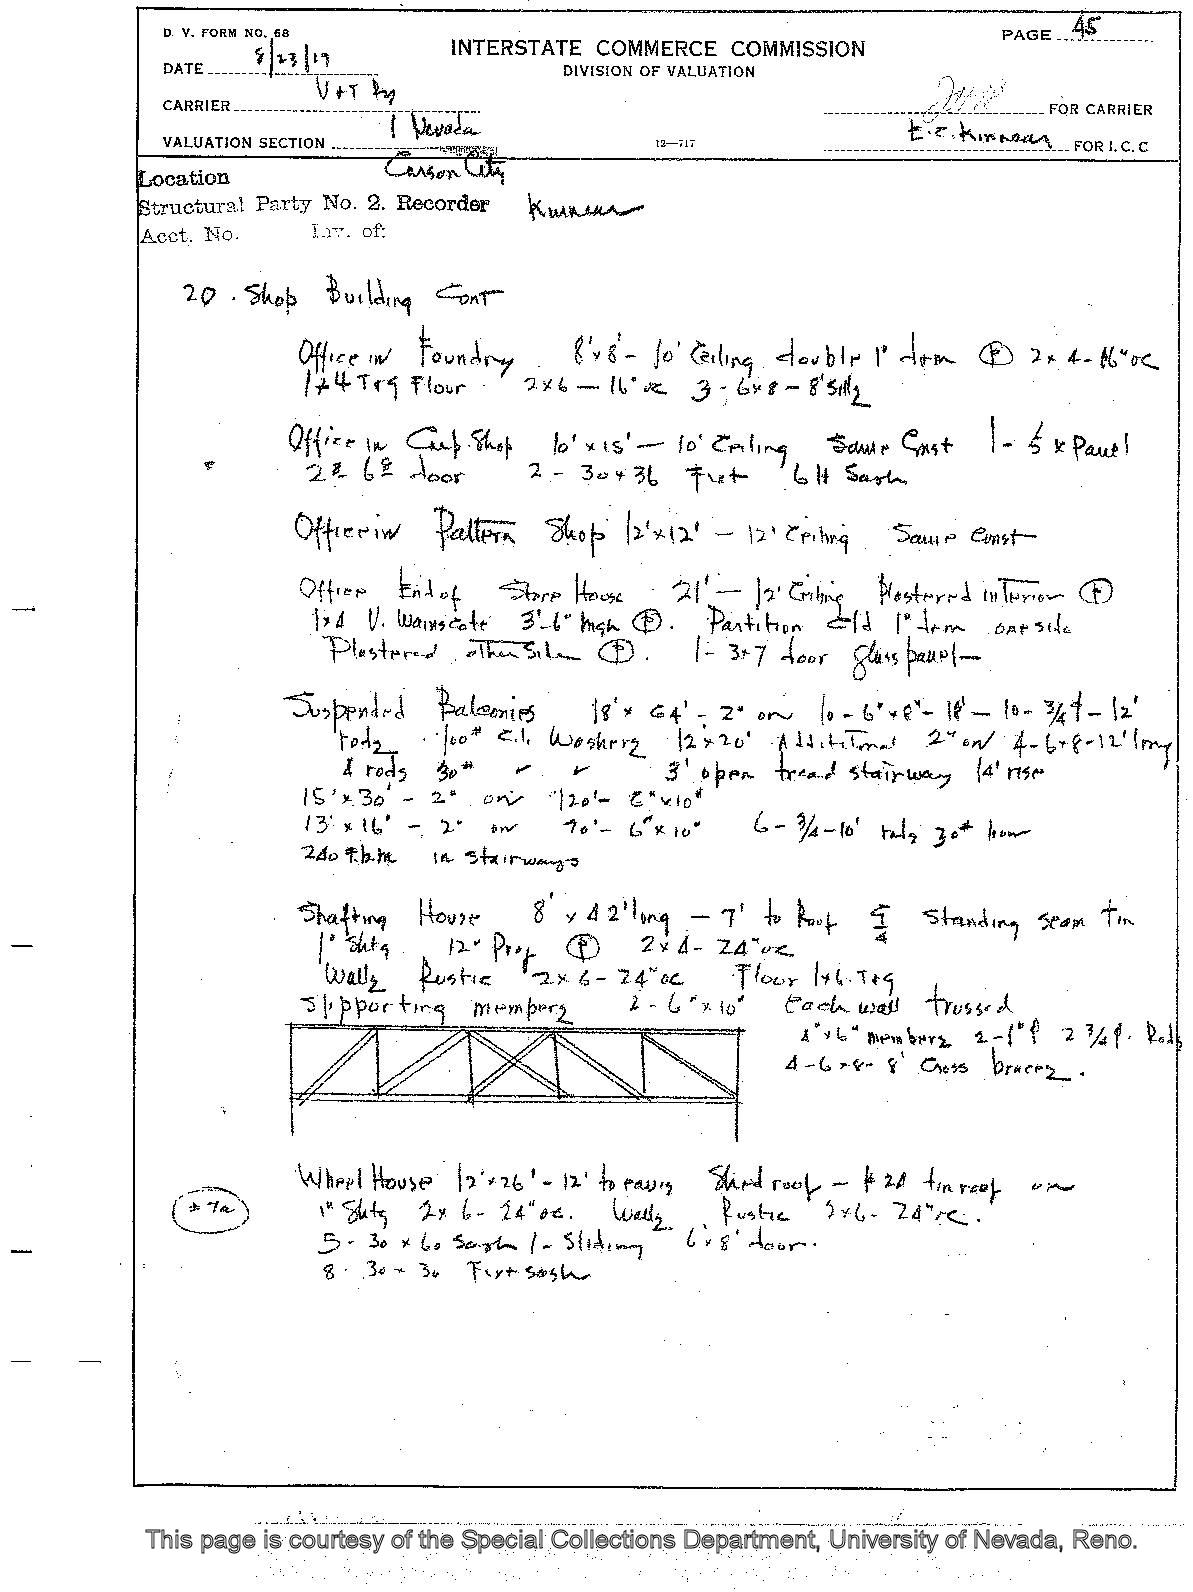 D. V. FORM NO. 68
PAGE 45
INTERSTATE COMMERCE COMMISSION
DATE 8/23/19
DIVISION OF VALUATION
CARRIER V+T Ry
FOR CARRIER
VALUATION SECTION 1 Nevada
12—717
E.C. Kinnear FOR I. C. C
Location Carson City
Structural Party No. 2. Recorder Kinnear
Acct. No. Inv. of:
20. Shop Building Cont
Office in Foundry 8'x8' - 10' Ceiling double 1" drm (P) 2x4-16" oc
1x4 T+g Floor 2x6 - 16" oc 3-6x8-8' Sills
Office in Carp. Shop 10'x15' - 10' Ceiling Same Const 1-5 x Panel
door 2-30x36 Fixt 6 lt Sash
Office in Pattern Shop 12'x12' - 12' Ceiling Same Const
Office End of Store House 21' - 12' Ceiling Plastered interior (P)
1x4 V. Wainscote 3'-6" high (P). Partition 1" drm one side
Plastered other side (P). 1-3x7 door glass panel
Suspended Balconies 18' x 64' - 2" on 10-6"x8"-18' - 10-3/4 - 12'
rods 100# C.I. Washers 12x20' Additional 2" on 4-6x8-12' long
4 rods 30# 3' open tread stairway 14' rise
15'x30' - 2" on 120'- 6"x10"
13'x16' - 2" on 70'- 6"x10" 6-3/4-10' rods 30# iron
240 f.b.m. in stairways
Shafting House 8' x 42' long - 7' to Roof Standing seam tin
1" Shtg 12" Proj (P) 2x4-24" oc
Walls Rustic 2x6-24" oc Floor 1x6 T+g
Supporting members 2-6"x10" Each wall trussed
4"x6" members 2-1" 2 3/4 Rods
4-6x8-8' Cross braces.
Wheel House 12'x26' - 12' to eaves Shed roof - #24 tin roof on
#7a
1" Shtg 2x6-24" oc. Walls Rustic 2x6-24" oc.
5-30x60 Sash 1-Sliding 6x8' door.
8-30-30 Fixt sash
This page is courtesy of the Special Collections Department, University of Nevada, Reno.